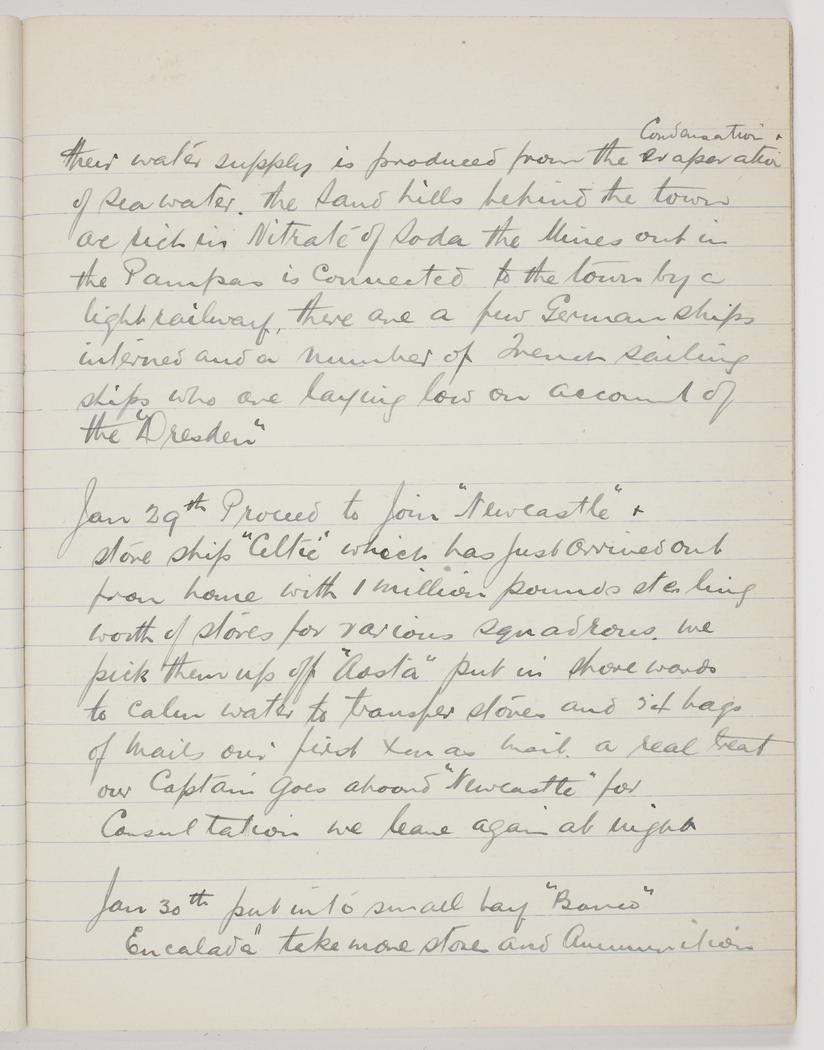 Condensation &
their water supply is produced from the evaperation
of sea water. the sand hills behind the town
are rich in Nitrate of Soda the Mines out in
the Pampas is Connected to the town by a
light railway, there are a few German ships
interned and a number of French sailing
ships who are laying low on account of
the "Dresden"
Jan 29th Proceed to Join "Newcastle" &
store ship "Celtic" which has Just arrived out
from home with 1 million pounds sterling
worth of stores for various squadrons. we
pick them up off "Aosta" put in shorewards
to calm water to transfer stores and 34 bags
of mails our first Xmas mail. a real treat
our Captain Goes aboard "Newcastle" for
Consultation we leave again at night
Jan 30th put into small bay "Banco"
Encalada" take more stores and Ammunition